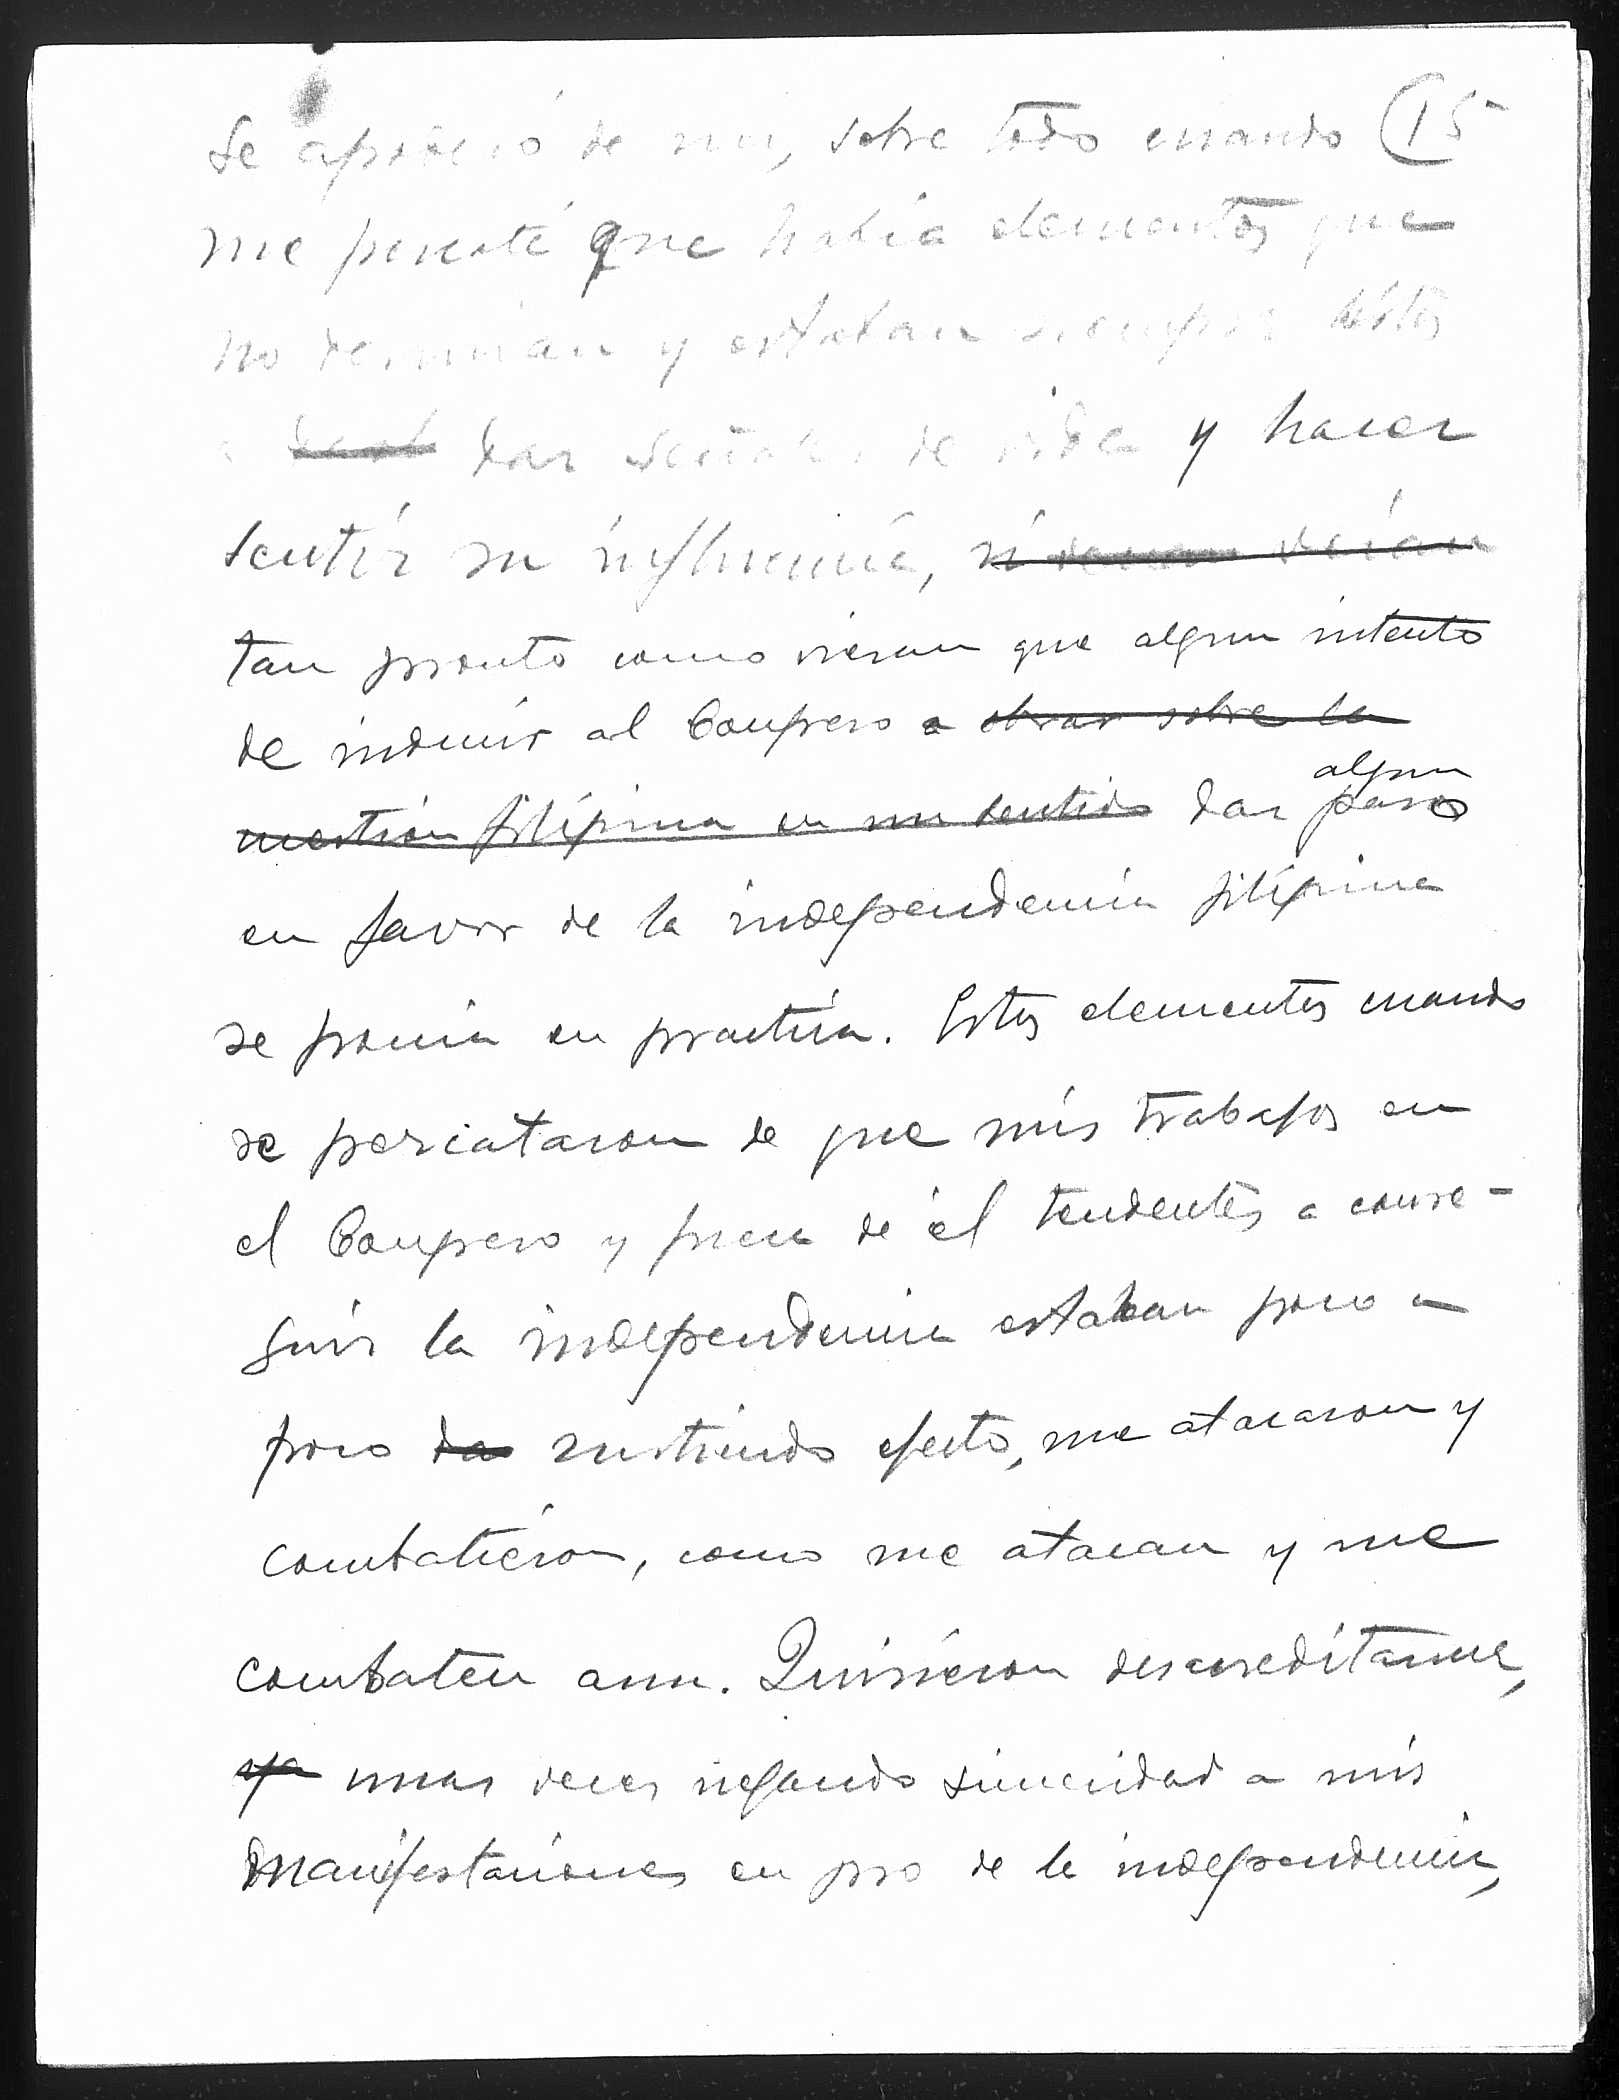 Se apoderó de mi, sobre todo cuando (15
me percaté que habia elementos que
no dormian y estaban siempre listos
a dar señales de vida y hacer
sentir su influencia, si veian
tan pronto como vieran que algun intento
de inducir al Congreso a obrar sobre la
algun
cuestión filipina en un sentido dar paso
en favor de la independencia filipina
se ponia en practica. Estos elementos cuando
se percataron de que mis trabajos en
el Congreso y fuera de él tendentes a conse-
guir la independencia estaban poco a
poco da surtiendo efecto, me atacaron y
combatieron, como me atacan y me
combaten aun. Quisieron desacreditarme,
ya unas veces negando sinceridad a mis
manifestaciones en pro de la independencia,